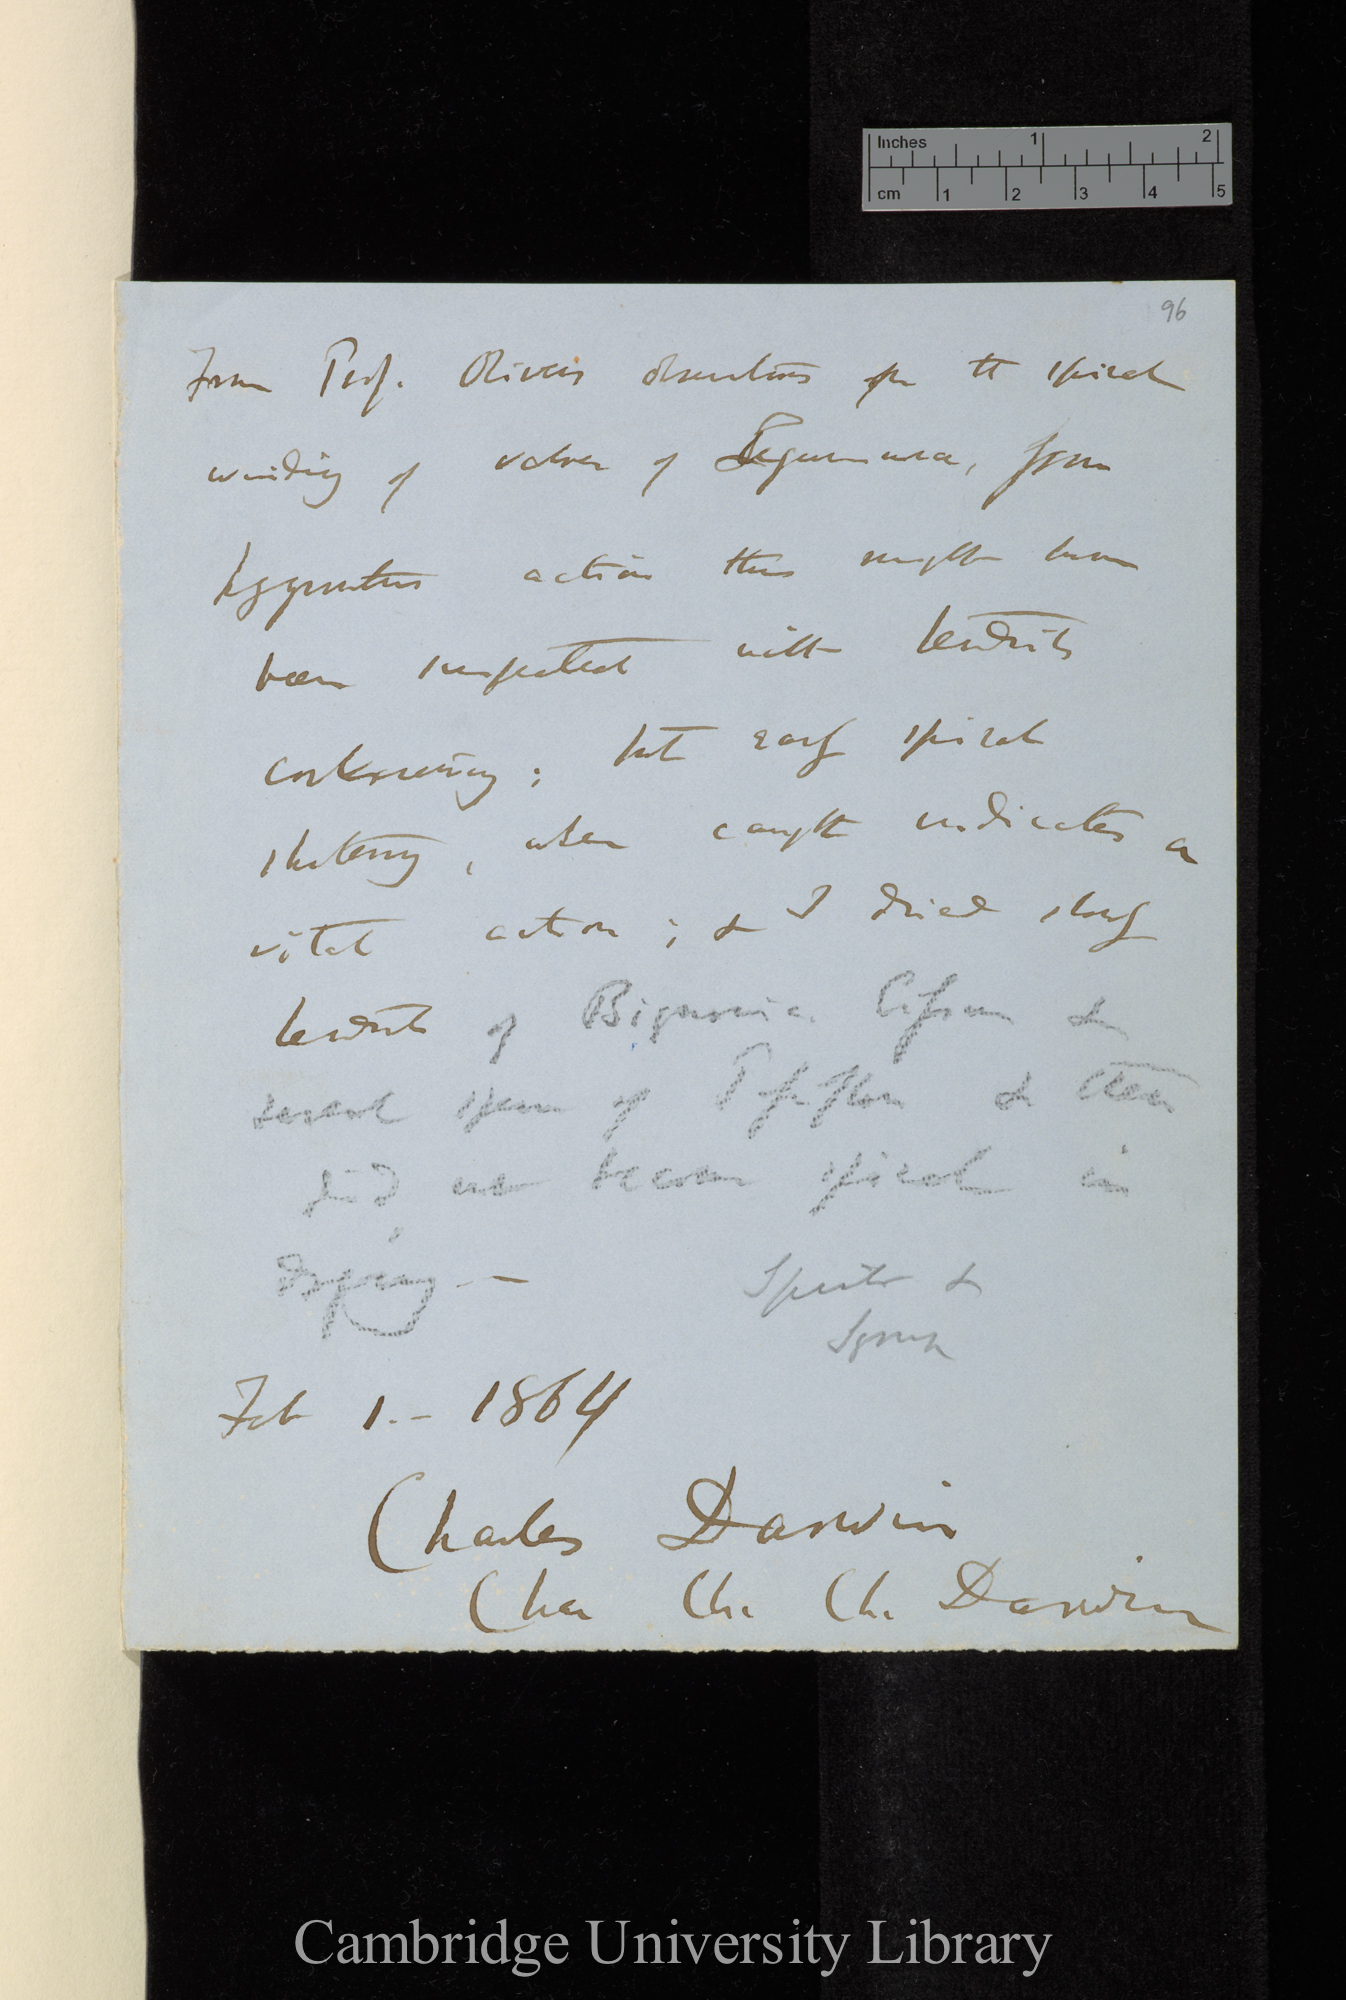 Inches 1 2
cm 1 2 3 4 5
96
From Prof. Olivers observations on the spiral
winding of valves of Leguminosæ, from
hygrometric action this might have
been suspected with tendrils
corkscrewing; but early spiral
shortening, when caught indicates a
vital action; & I dried slowly
tendrils of Bignonia &
several specimens of Passiflora & these
did not become spiral in
drying —
Spirits &
Syrup
Feb 1. — 1864
Charles Darwin
Cha Ch. Ch. Darwin
Cambridge University Library